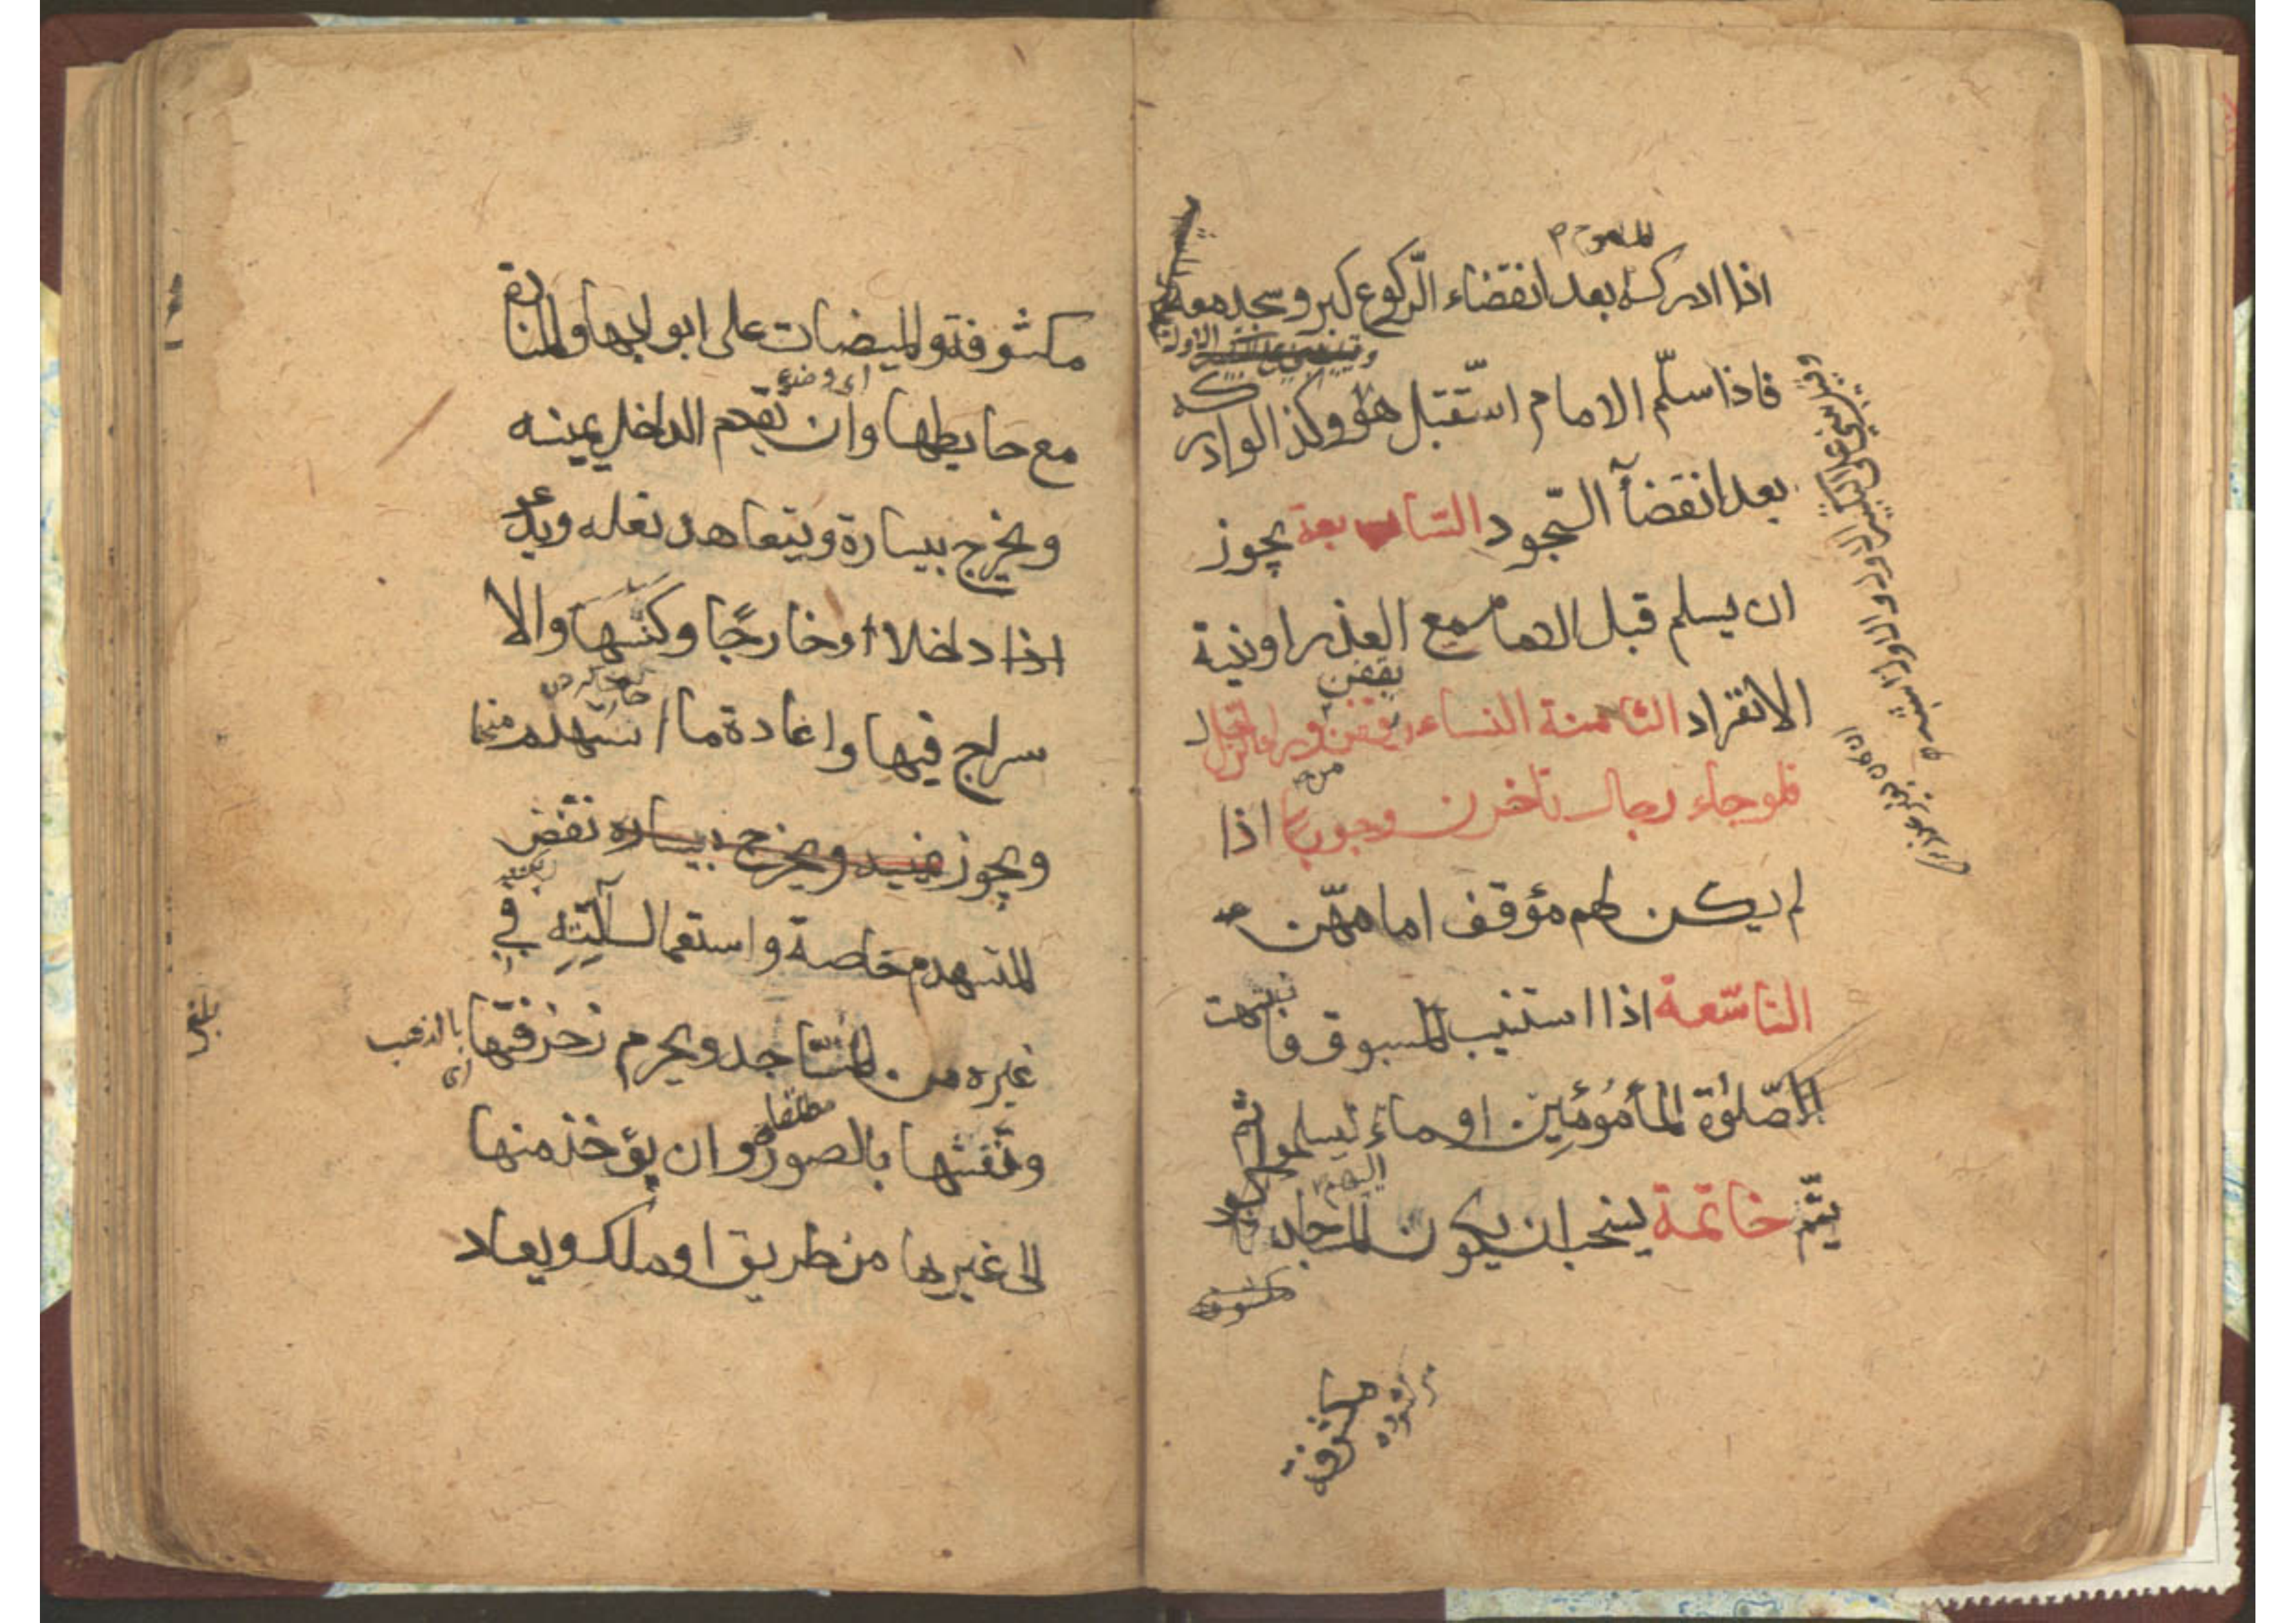 المأموم
اذا ادركه بعد انقضاء الرّكوع كبر وسجد معه
فاذا سلّم الامام استقبل هو وكذا لو ادركه
بعد انقضآء السّجود السابعة يجوز
ان يسلم قبل الامام مع العذر او نية
الانفراد الثامنة النساء يقفن
فلو جاء رجال تاخرن وجوبا اذا
لم يكن لهم موقف امامهّن
التاسعة اذا استنيب المسبوق فانتهت
الصّلوة المأمومين اوماء ليسلموا ثم
يتم خاتمة يستحب ان يكون المساجد
مكشوفة
مكشوفة والميضات على ابوابها والمنارة
اى وضع
مع حايطها وان تقدم الداخل يمينه
ويخرج بيساره ويتعاهد نعله ويدعو
اذا داخلا او خارجا وكنسها والا
سراج فيها واعادة ما استهدم منها
ويجوز ويخرج بيساره نقض
المستهدم خاصة واستعمال آلته في
غيره من المساجد ويحرم زخرفتها بالذهب
مطلقا
ونقشها بالصور وان يؤخذ منها
الى غيرها من طريق او ملك ويعاد